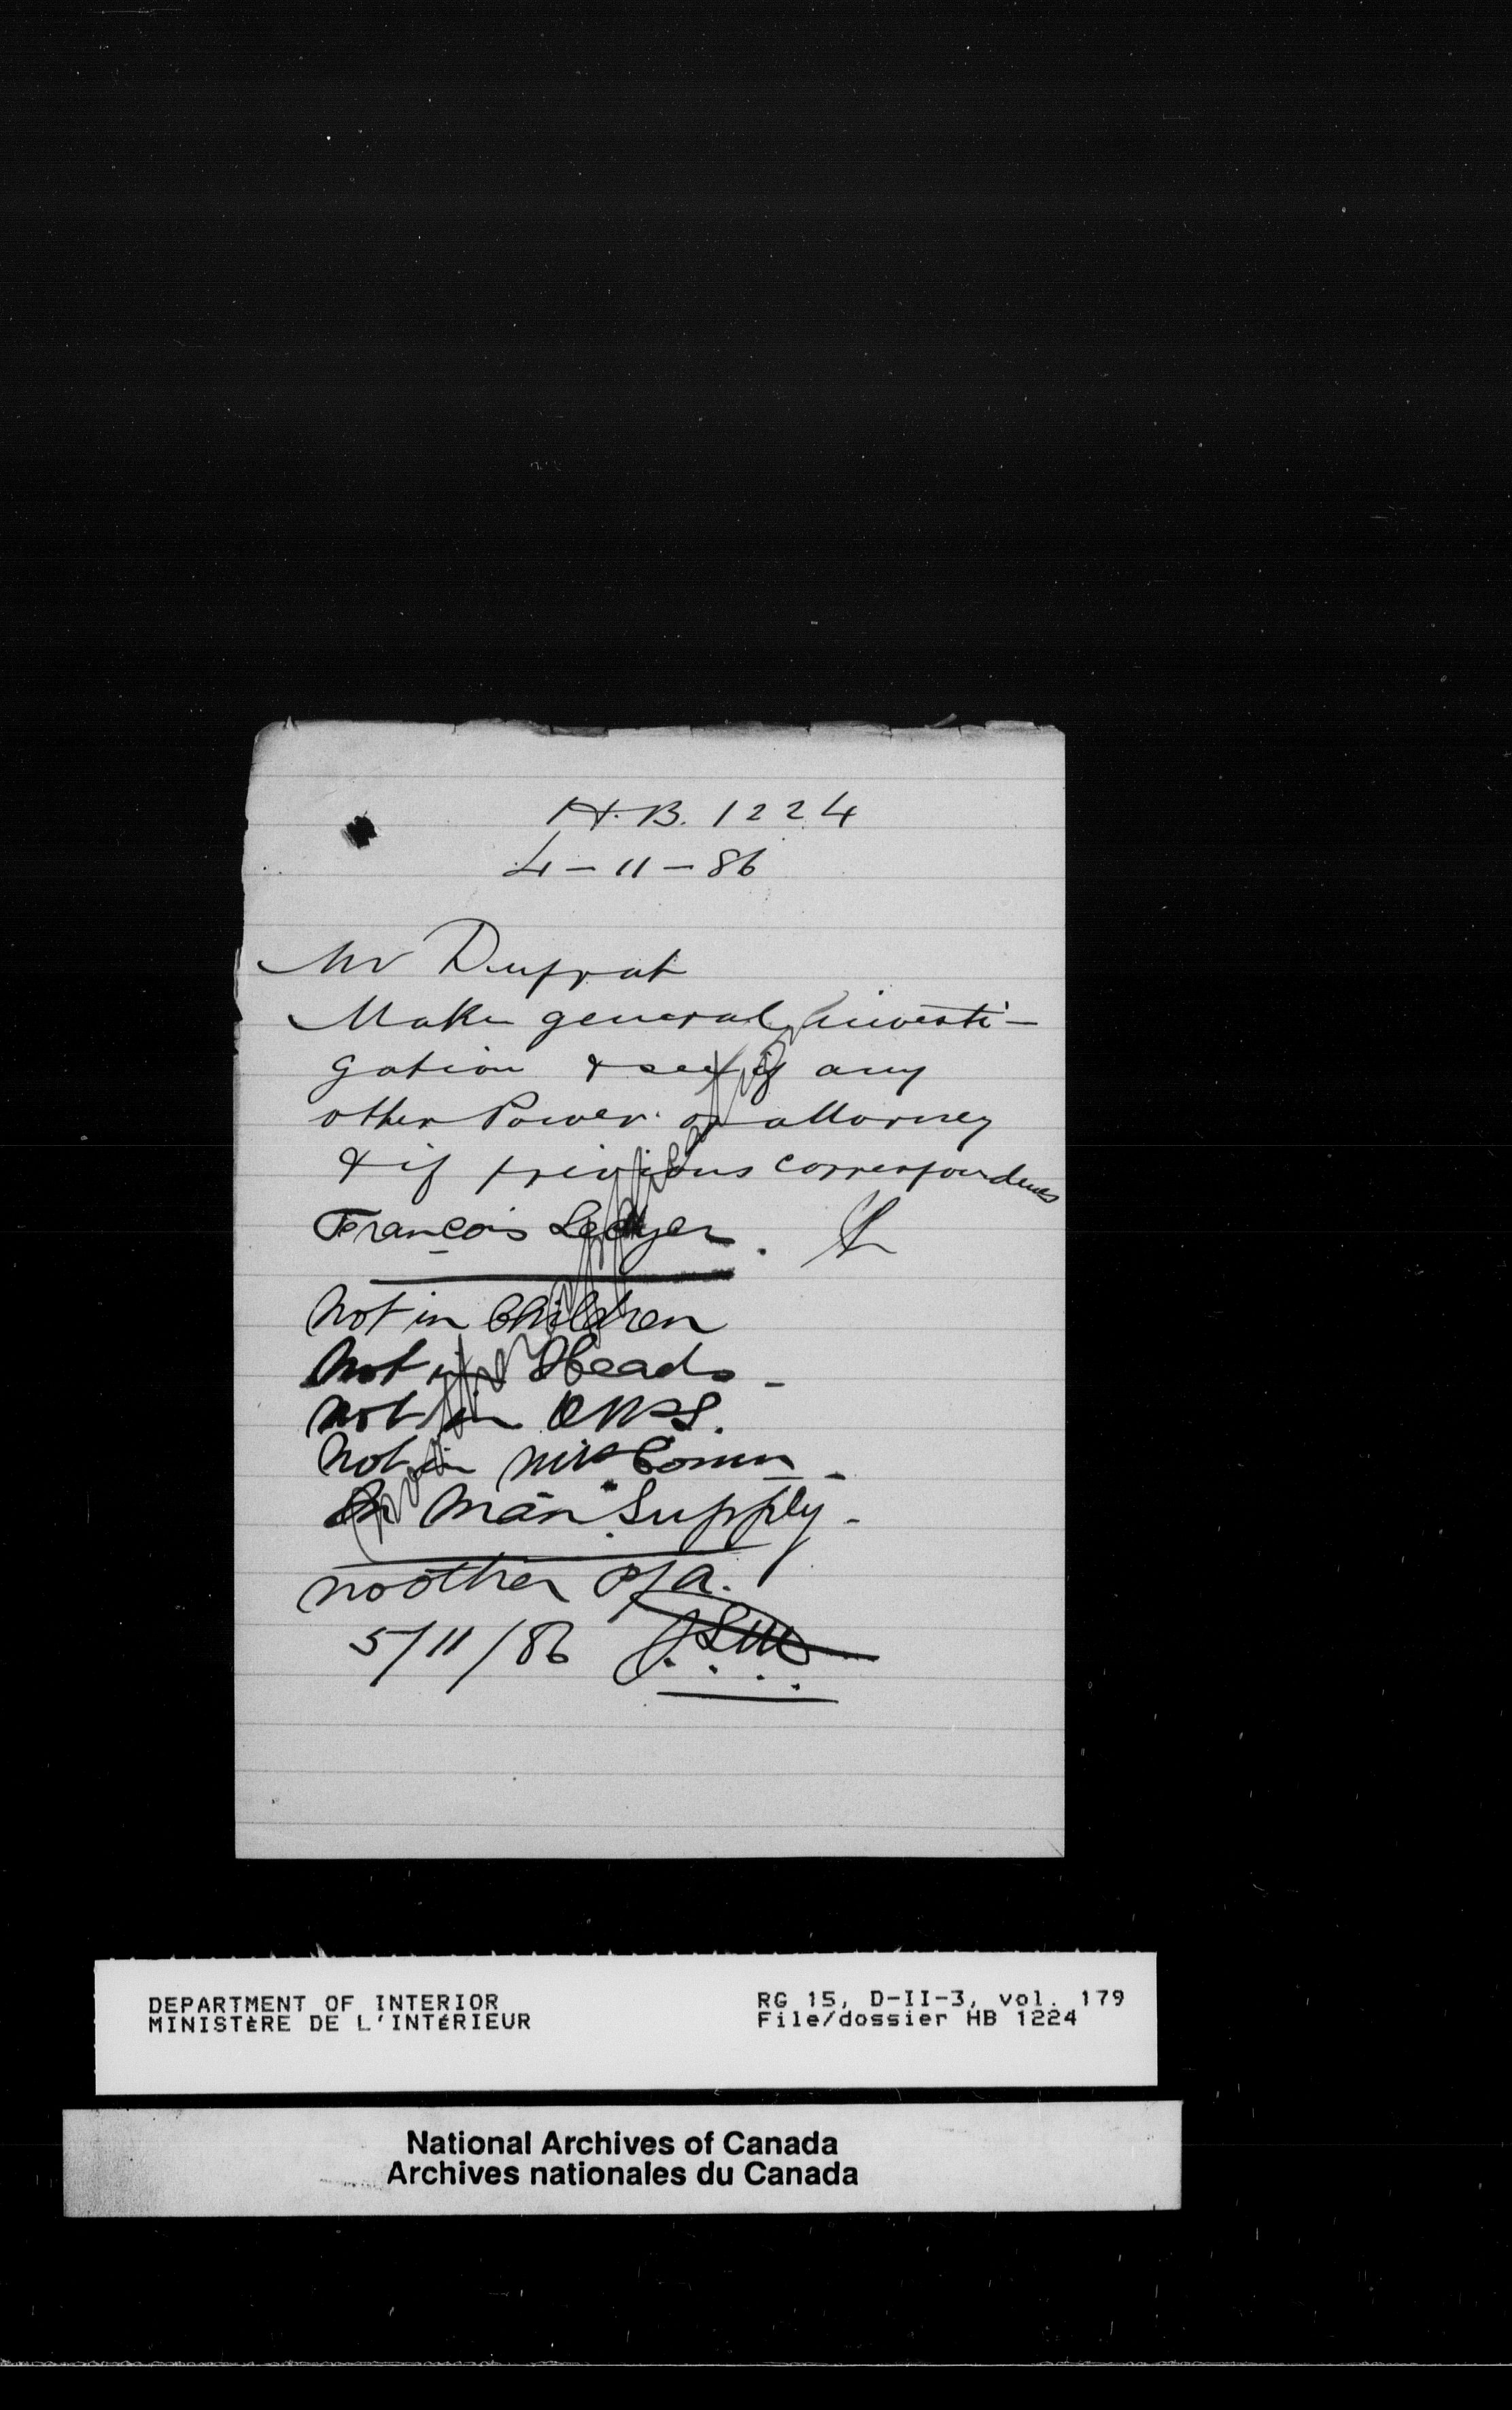 H.B. 1224
4-11-86
Mr Duprat
Make general investi-
gation & see if any
other Power of attorney
& if previous correspondence
François
Not in Children
Not in Heads -
not in
Not in Comm -
In Man Supply -
no other P/a.
5/11/86
DEPARTMENT OF INTERIOR
MINISTÈRE DE L'INTÉRIEUR
RG 15, D-II-3, vol. 179
File/dossier HB 1224
National Archives of Canada
Archives nationales du Canada